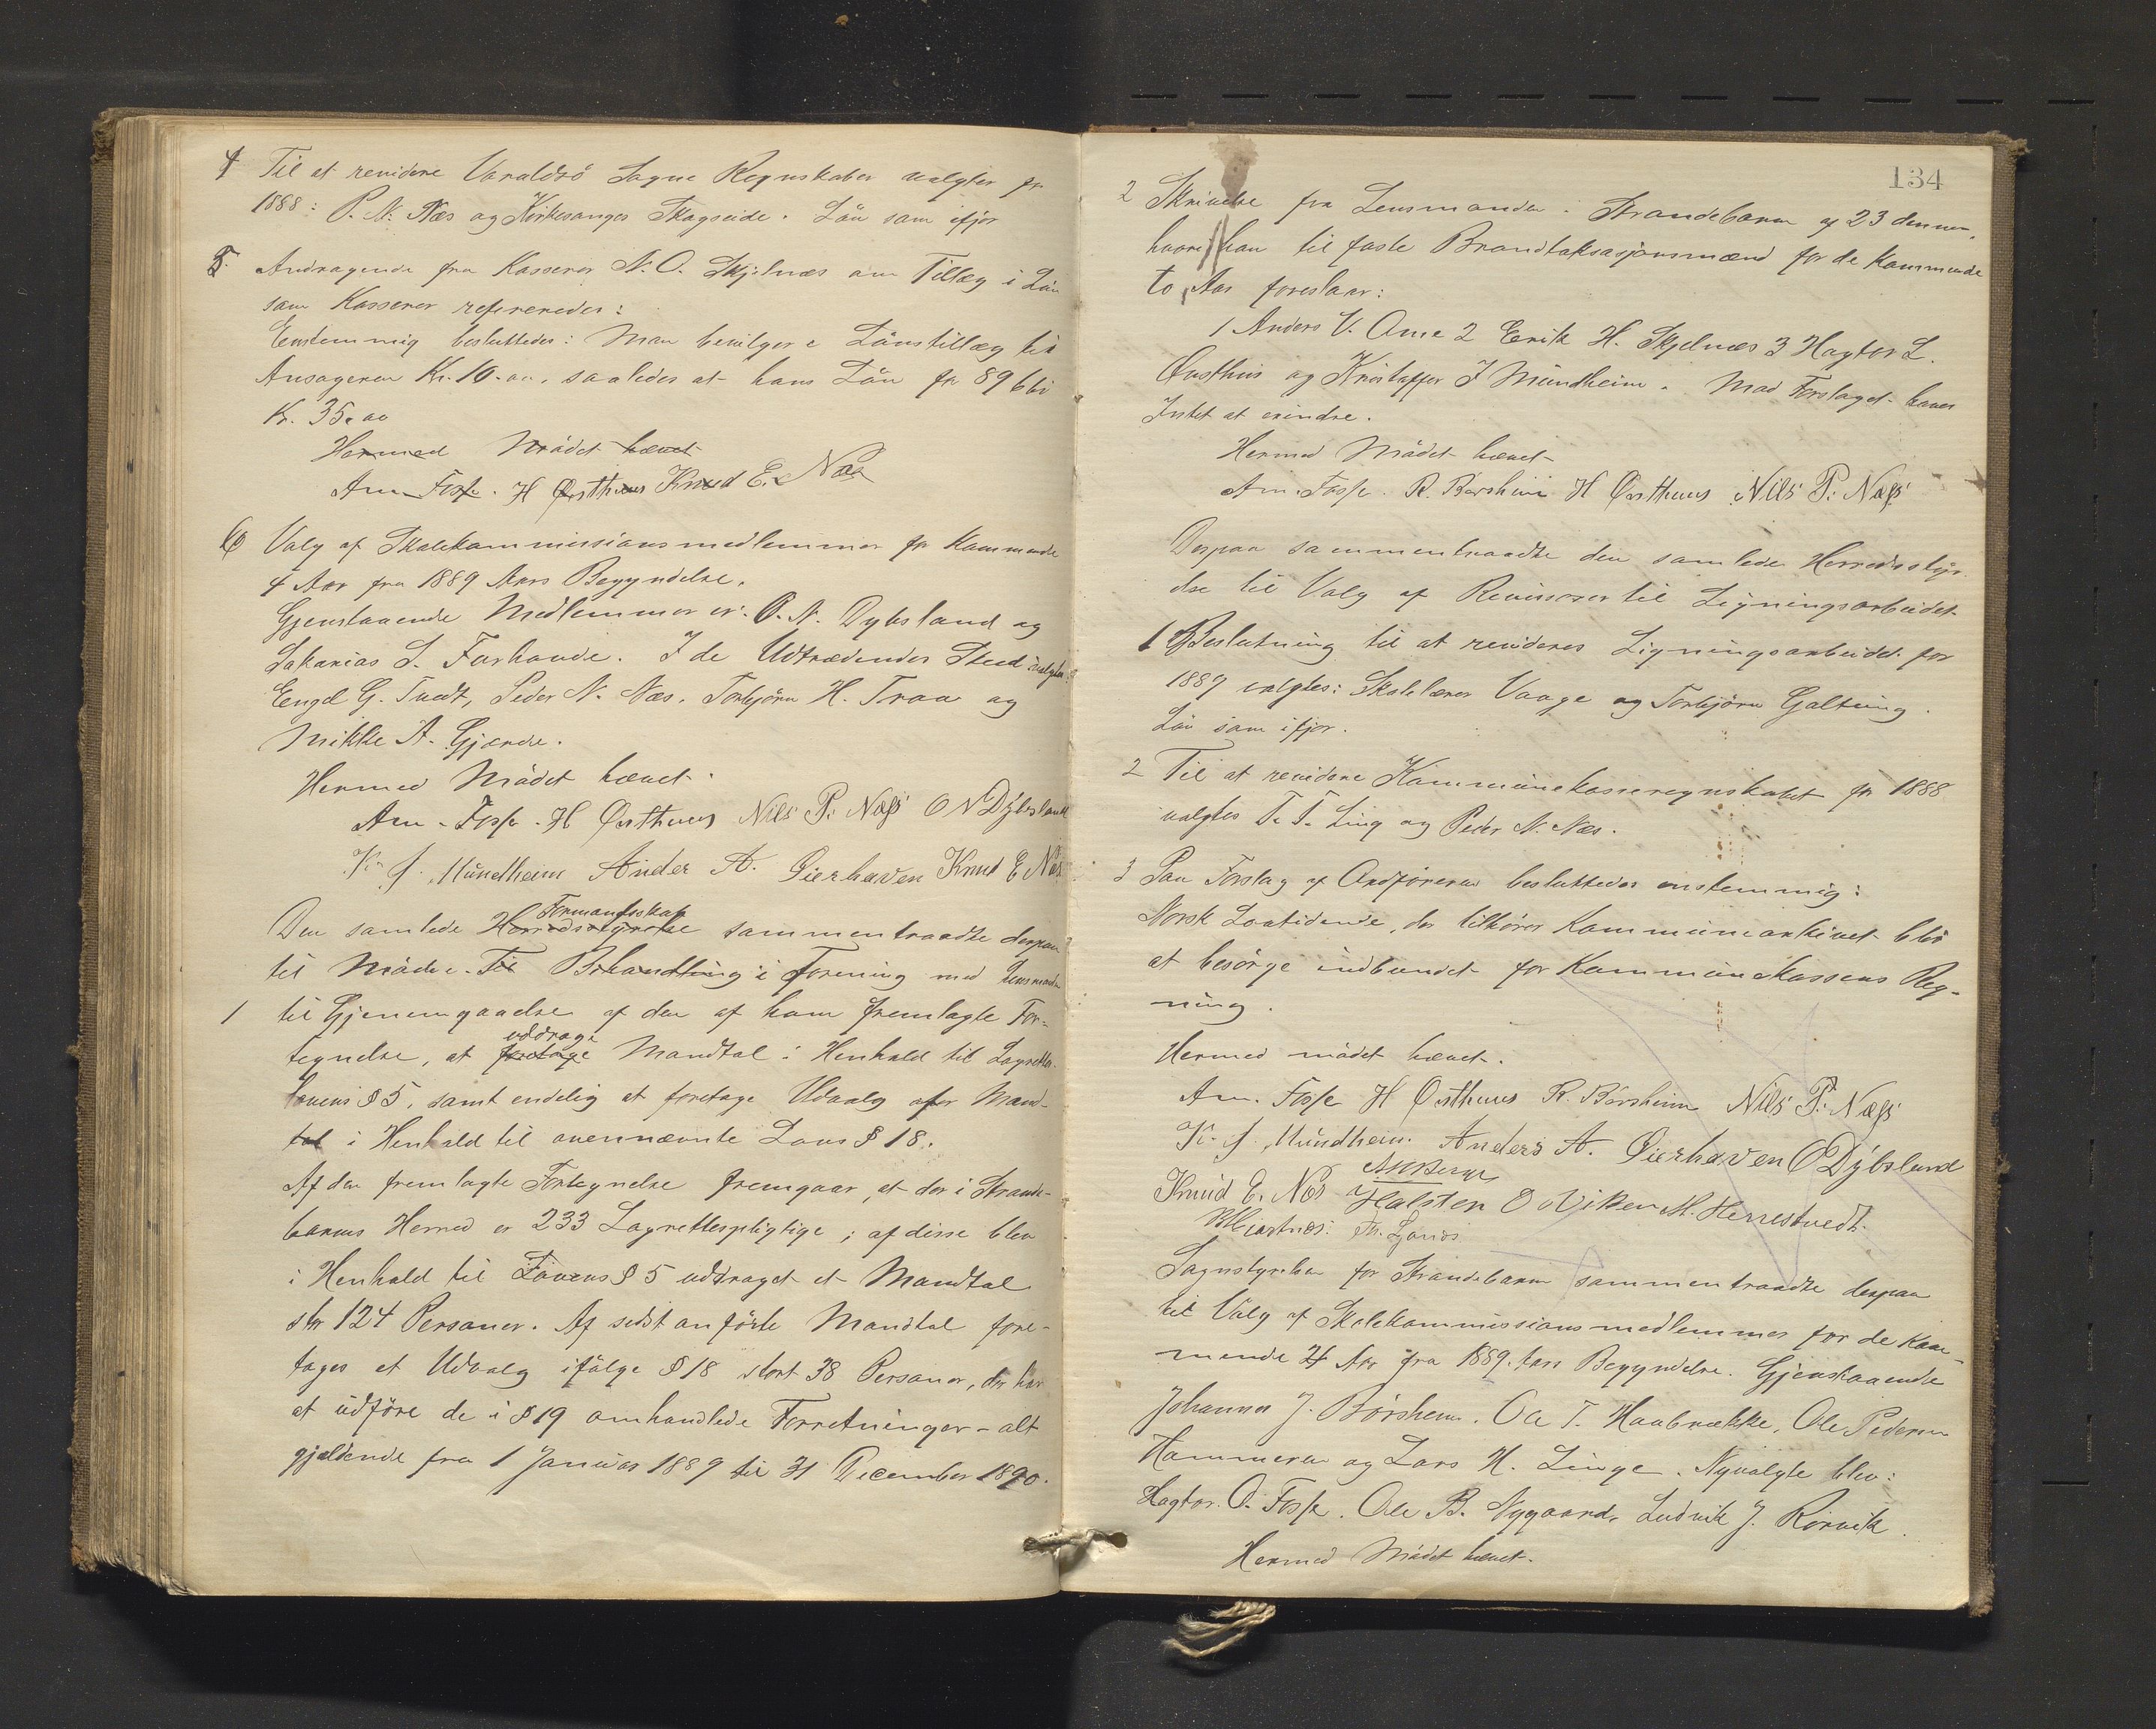 4 Til at revidere Varaldsö Sogns Regnskaber valgtes for
1888: P. N. Næs og Kirkesanger Skogseide. Lön som ifjor
5. Andragende fra Kasserer N. O. Skjelnæs om Tillæg i Lön
som Kasserer refereredes:
Enstemmig besluttedes: Man bevilgere Lönstillæg til
Ansøgeren Kr. 10.00, saaledes at hans Lön for 89 blir
Kr. 35.00
Hermed Mödet hævet
Am. Fosse. H Øvsthuus Knud E. Næs
6 Valg af Skolekommissionsmedlemmer for kommende
4 Aar fra 1889 Aars Begyndelse.
Gjenstaaende Medlemmer er: O. N. Dybsland og
Sakarias S. Farhovde. I de Udtrædendes Sted valgtes:
Engel G. Tvedt, Peder N. Næs, Torbjörn H. Traa og
Mikke A. Gjærde.
Hermed Mödet hævet.
Am. Fosse. H Øvsthuus Nils P. Næss O N Dÿbsland
Kr. J. Mundheim Ander A. Øierhaven Knud E Næs
Formandsskab
Den samlede Herredsstyrelse sammentraadte derpaa
til Möde. Til Behandling i Forening med Lensmanden
1 til Gjenemgaaelse af den af ham fremlagte For-
uddrage
tegnelse, at foretage Mandtal i Henhold til Lagrettes-
lovens § 5, samt endelig at foretage Udvalg afor Mand-
tal i Henhold til ovennævnte Lovs § 18.
Af den fremlagte Fortegnelse fremgaar, at der i Strande-
barms Herred er 233 Lagrettespligtige; af disse blev
i Henhold til Lovens § 5 uddraget et Mandtal
stor 124 Personer. Af sidst anförte Mandtal fore-
tages et Udvalg ifölge § 18 stort 38 Personer, der har
at udföre de i § 19 omhandlede Forretninger - alt
gjældende fra 1 Januar 1889 til 31 December 1890.
134
2 Skrivelse fra Lensmanden i Strandebarm af 23 dennes,
hvori han til faste Brandtaksasjonsmænd for de kommende
to Aar foreslaar:
1 Anders V. Ome 2 Erik H. Skjelnæs 3 Hagtor L.
Øvsthus og Kristoffer J Mundheim. Mod Forslaget haves
Intet at erindre.
Hermed Mödet hævet
Am. Fosse. R. Börsheim H Øvsthuus Nils P. Næss
Derpaa sammentraadte den samlede Herredsstyr-
else til Valg af Revisorer til Ligningsarbeidet
1 Beslutning til at revideres Ligningsarbeidet for
1889 valgtes: Skolelærer Vaage og Torbjörn Galtung.
Lön som ifjor.
2 Til at revidere Kommunekasseregnskabet for 1888
valgtes T. T. Ling og Peder N. Næs.
3 Paa Forslag af Ordföreren besluttedes enstemmig:
Norsk Lovtidende, der tilhörer Kommunearkivet blir
at besörge indbundet for Kommunekassens Reg-
ning.
Hermed mödet hævet.
Am. Fosse H Øvsthuus R. Börsheim Nils P. Næss
Kr. J. Mundheim. Anders A. Øierhaven O Dÿbsland
Knud E. Næs Halsten O Viken M. Herrestvedt.
Sognstyrelsen for Strandebarm sammentraadte derpaa
til Valg af Skolekommissionsmedlemmer for de kom-
mende 4 Aar fra 1889 Aars Begyndelse. Gjenstaaende
Johannes J. Börsheim. Ole T. Haabrække, Ole Pedersen
Hammeren og Lars H. Linge. Nyvalgte blev:
Hagtor O. Fosse. Ole B. Nygaard, Ludvik J. Rörvik.
Hermed Mödet hævet.